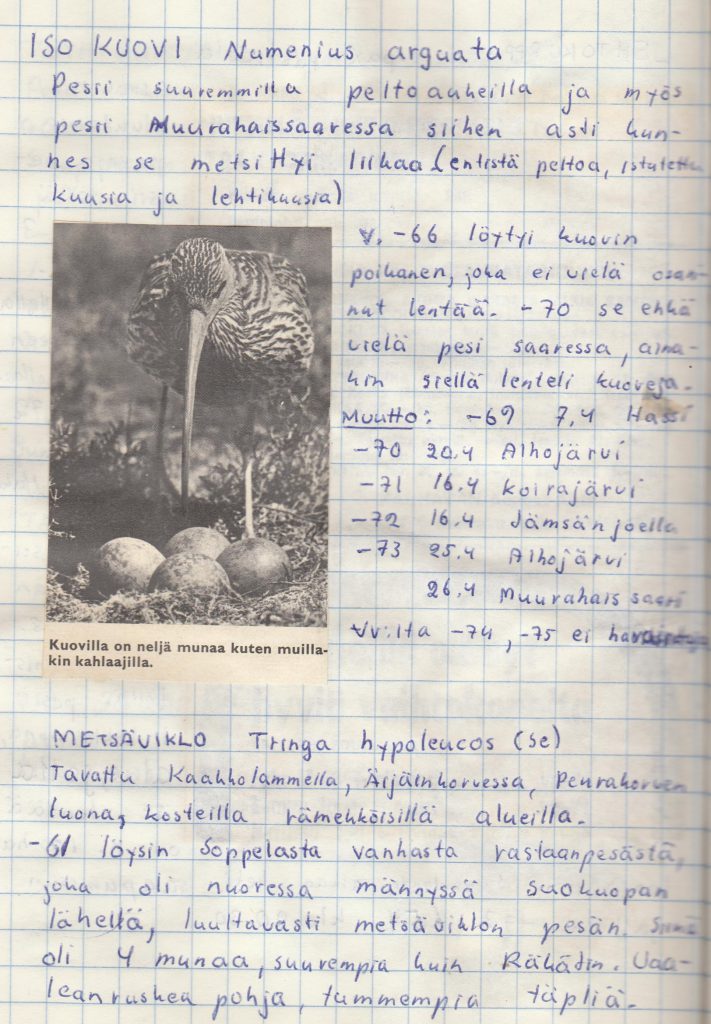 ISO KUOVI Numenius arguata
Pesii suuremmilla peltoaukeilla ja myös
pesii Muurahaissaaressa siihen asti kun-
nes se metsittyi liikaa (entistä peltoa, istutettu
kuusia ja lehtikuusia)
v. -66 löytyi kuovin
poikanen, joka ei vielä osan-
nut lentää. -70 se ehkä
vielä pesi saaressa, aina-
kin siellä lenteli kuoveja.
Muutto: -69 7.4 Hassi
-70 20.4 Alhojärvi
-71 16.4 Koirajärvi
-72 16.4 Jämsänjoella
-73 25.4 Alhojärvi
26.4 Muurahaissaari
Vv:ilta -74, -75 ei
Kuovilla on neljä munaa kuten muilla-
kin kahlaajilla.
METSÄVIKLO Tringa hypoleucos (se)
Tavattu Kaakkolammella, Äijälnkorvessa, Peurakorven
luona, kosteilla rämeköisillä alueilla.
-61 löysin Soppelasta vanhasta rastaanpesästä,
joka oli nuoressa männyssä suokuopan
lähellä, luultavasti metsäviklon pesän. Siinä
oli 4 munaa, suurempia kuin Räkätin. Vaa-
leanruskea pohja, tummempia täpliä.